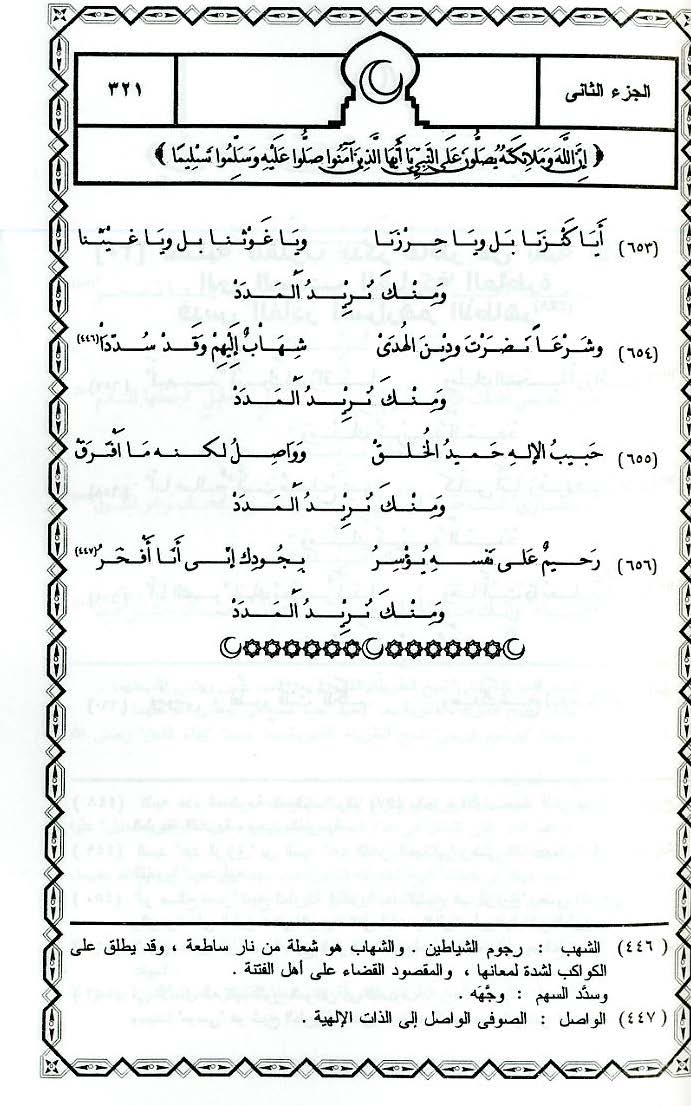 الجزء الثانى
٣٢١
﴿ إِنَّ اللَّهَ وَمَلَائِكَتَهُ يُصَلُّونَ عَلَى النَّبِيِّ يَا أَيُّهَا الَّذِينَ آمَنُوا صَلُّوا عَلَيْهِ وَسَلِّمُوا تَسْلِيمًا ﴾
(٦٥٣) أَيَا كَنْزَنَا بَل وَيَا حِرْزَنَا وَيَا غَوْثَنَا بل وَيَا غَيْثَنا
وَمِنْكَ نُرِيْدُ الْمَدَدْ
(٦٥٤) وشَرْعَاً نَصَرْتَ وَدِيْنَ الهُدَىْ شِهَابٌ إِلَيْهِمْ وَقَدْ سُدّدَا(٤٤٦)
وَمِنْكَ نُرِيْدُ الْمَدَدْ
(٦٥٥) حَبِيبُ الإلهِ حَمِيدُ الخُلقْ وَوَاصِلُ لكنه مَا افْتَرَقْ
وَمِنْكَ نُرِيْدُ الْمَدَدْ
(٦٥٦) رَحِيمٌ عَلى نَفْسِهِ يُؤْسِرُ بِجُودِك إنّى أَنَا أَفْخَرُ(٤٤٧)
وَمِنْكَ نُرِيْدُ الْمَدَدْ
(٤٤٦) الشهب : رجوم الشياطين . والشهاب هو شعلة من نار ساطعة ، وقد يطلق على
الكواكب لشدة لمعانها ، والمقصود القضاء على أهل الفتنة .
وسدَّد السهم : وجَّهَه .
(٤٤٧) الواصل : الصوفى الواصل إلى الذات الإلهية .